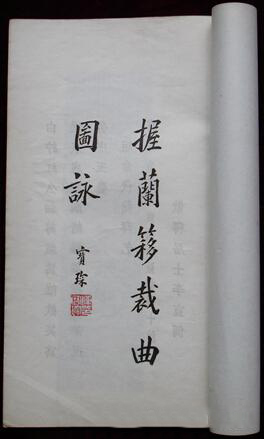 握蘭簃裁曲
圖詠
寶琛